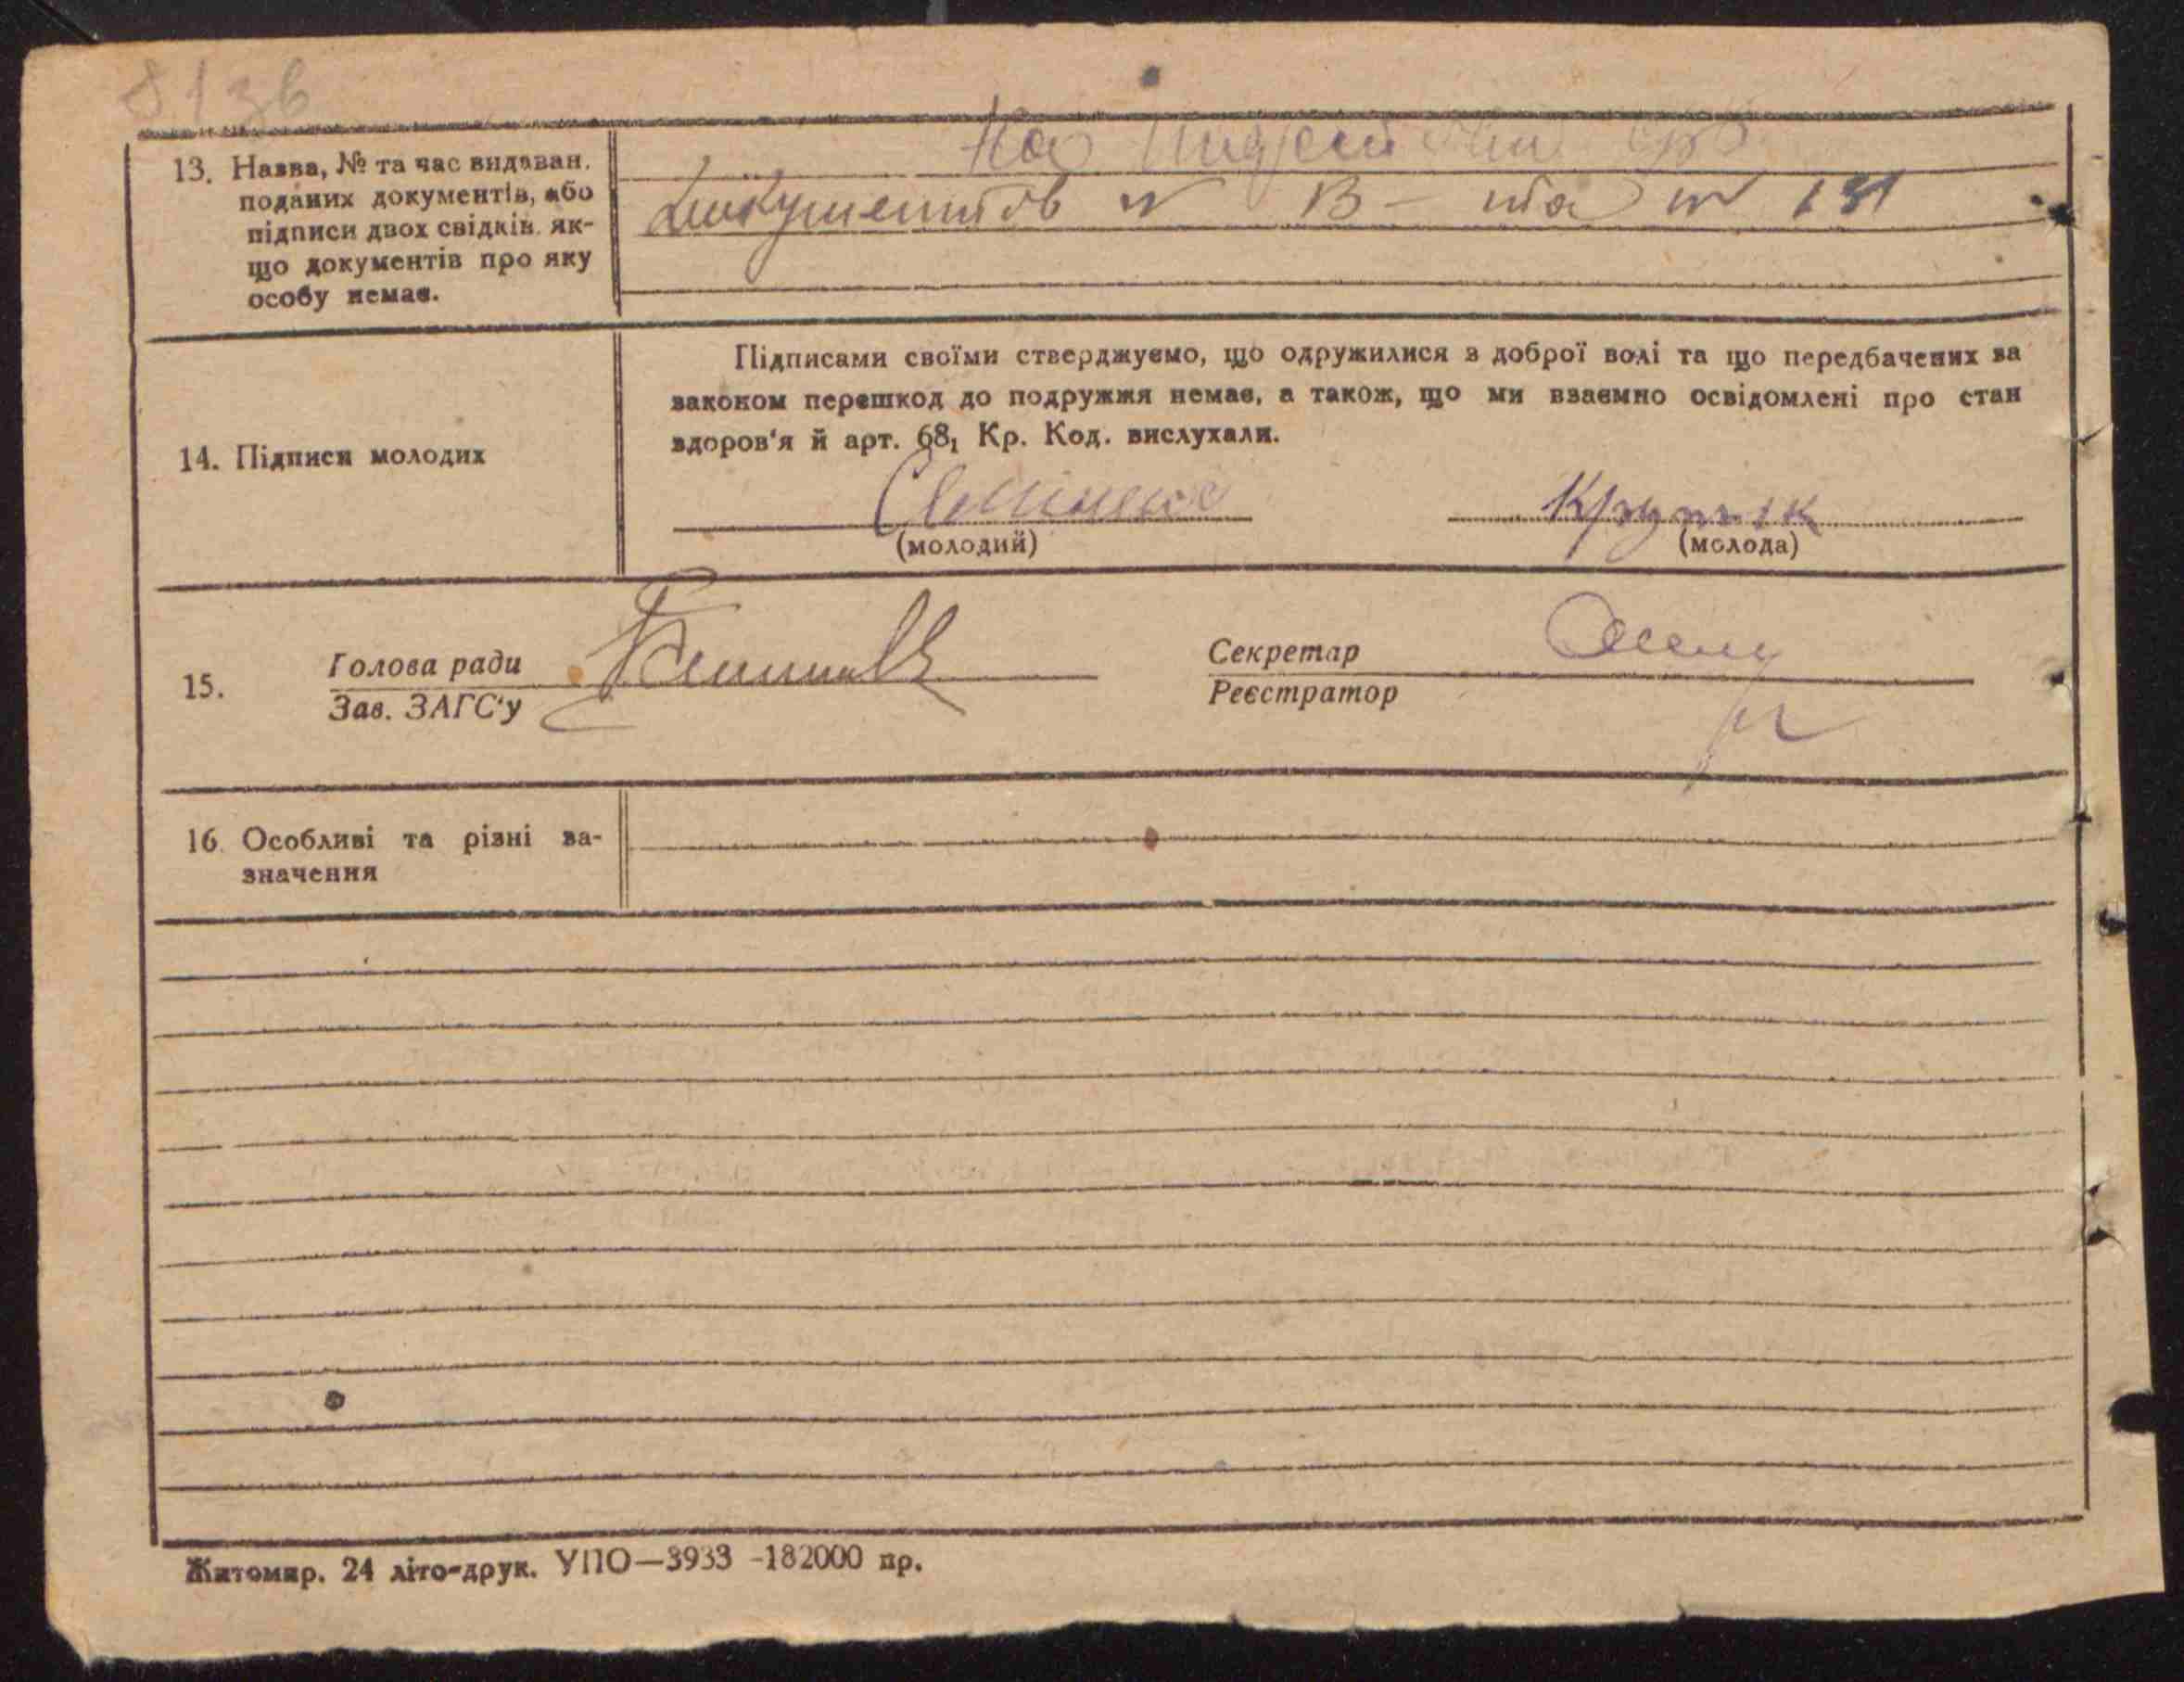 81зв
13. Назва, № та час видаван.
поданих документів, або
підписи двох свідків, як-
що документів про яку
особу немає.
На підставі
документів № 13 — та № 131
14. Підписи молодих
Підписами своїми стверджуємо, що одружилися з доброї волі та що передбачених за
законом перешкод до подружжя немає, а також, що ми взаємно освідомлені про стан
здоров'я й арт. 68₁ Кр. Код. вислухали.
Крупнік
(молодий) (молода)
15. Голова ради
Зав. ЗАГС'у
Секретар
Реєстратор
16. Особливі та різні за-
значення
Житомир. 24 літо-друк. УПО—3933 -182000 пр.